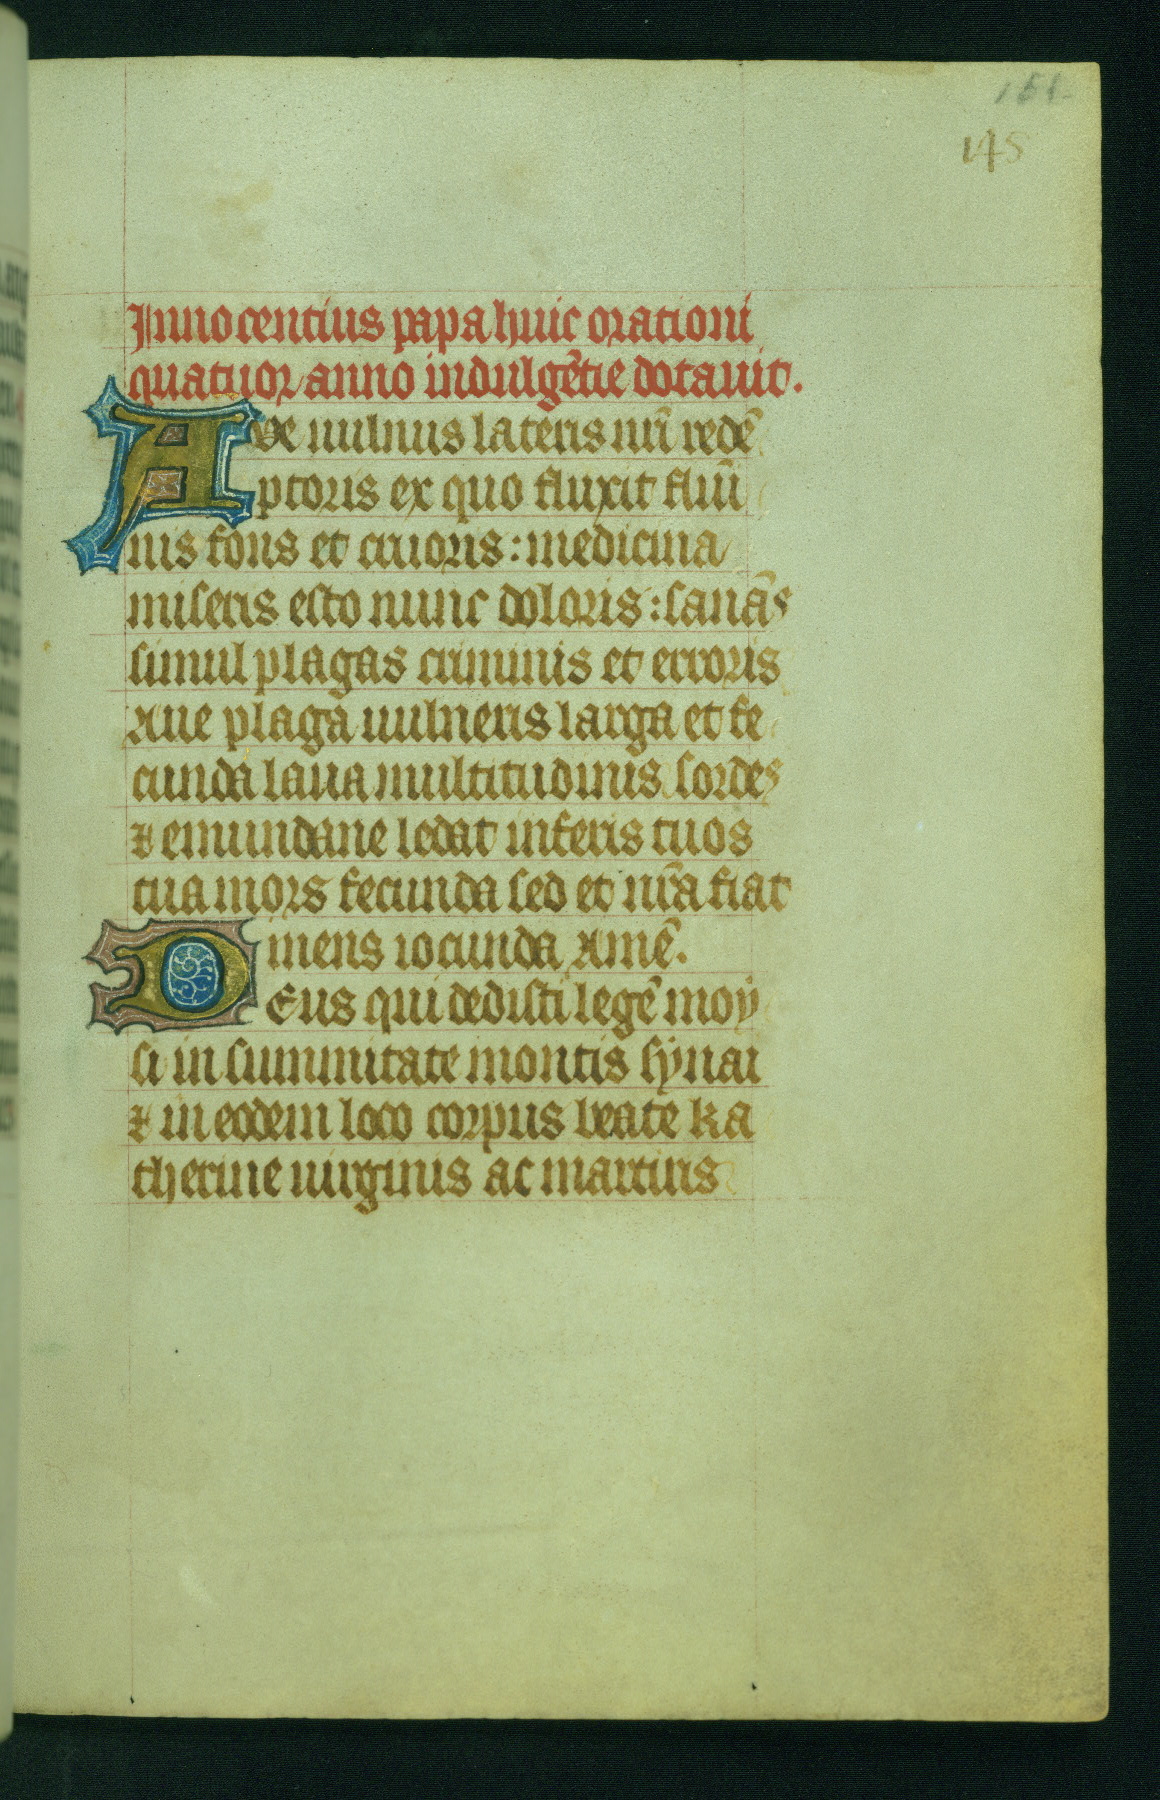 151
145
Innocentius papa huic orationi
quatuor anno indulgētie dotauit.
Aue uulnus lateris nrī redē
ptoris ex quo fluxit flūi
nis fons et cruoris : medicina
miseris esto nunc doloris : sanās
simul plagas criminis et erroris
Aue plaga uulneris larga et fe
cunda laua multitudinis sordes
⁊ emundane ledat inferis tuos
tua mors fecunda sed et nrā fiat
mens iocunda Amē.
DEus qui dedisti legē moy
si in summitate montis synai
⁊ in eodem loco corpus beate ka
therine uirginis ac martiris